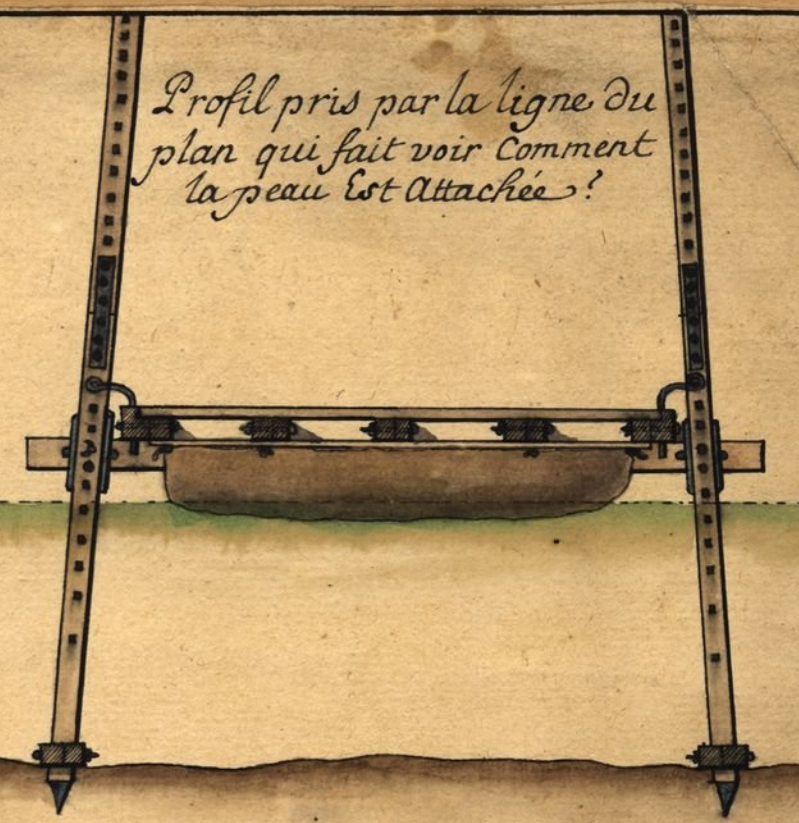 Profil pris par la ligne du
plan qui fait voir Comment
la peau Est Attachée ?